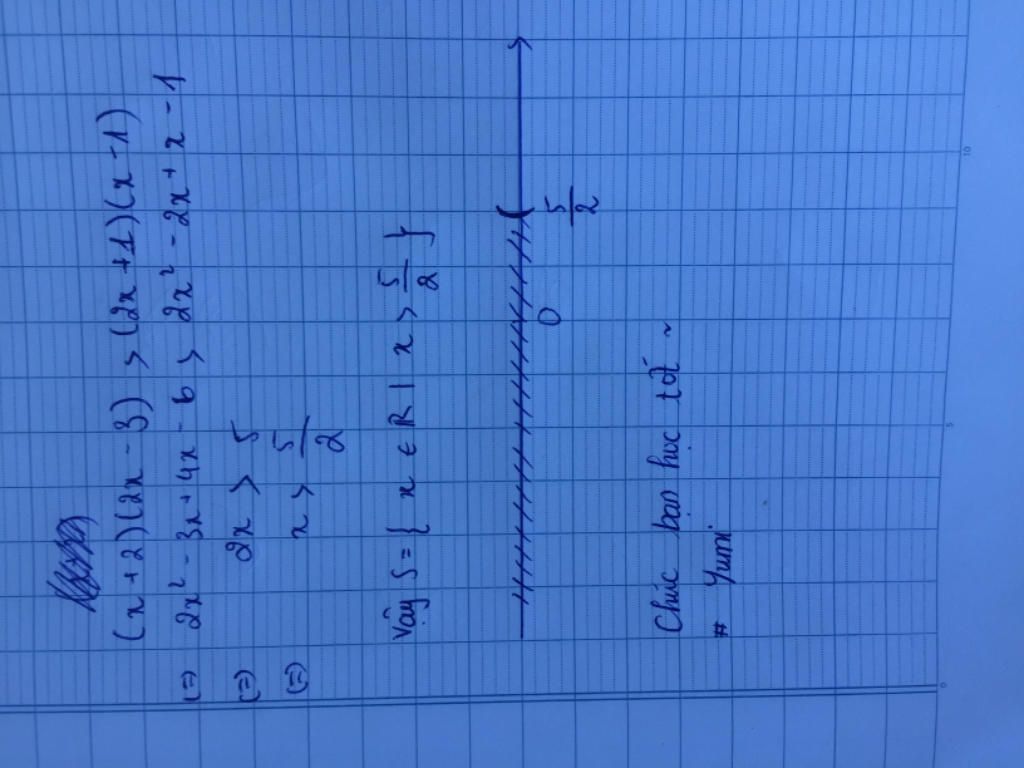 (x + 2)(2x - 3) > (2x + 1)(x - 1)
(=) 2x² - 3x + 4x - 6 > 2x² - 2x + x - 1
(=) 2x > 5
(=) x > 5/2
Vậy S = { x ∈ ℝ | x > 5/2 }
0 5/2
Chúc bạn học tốt ~
# Yumi
10
5
0